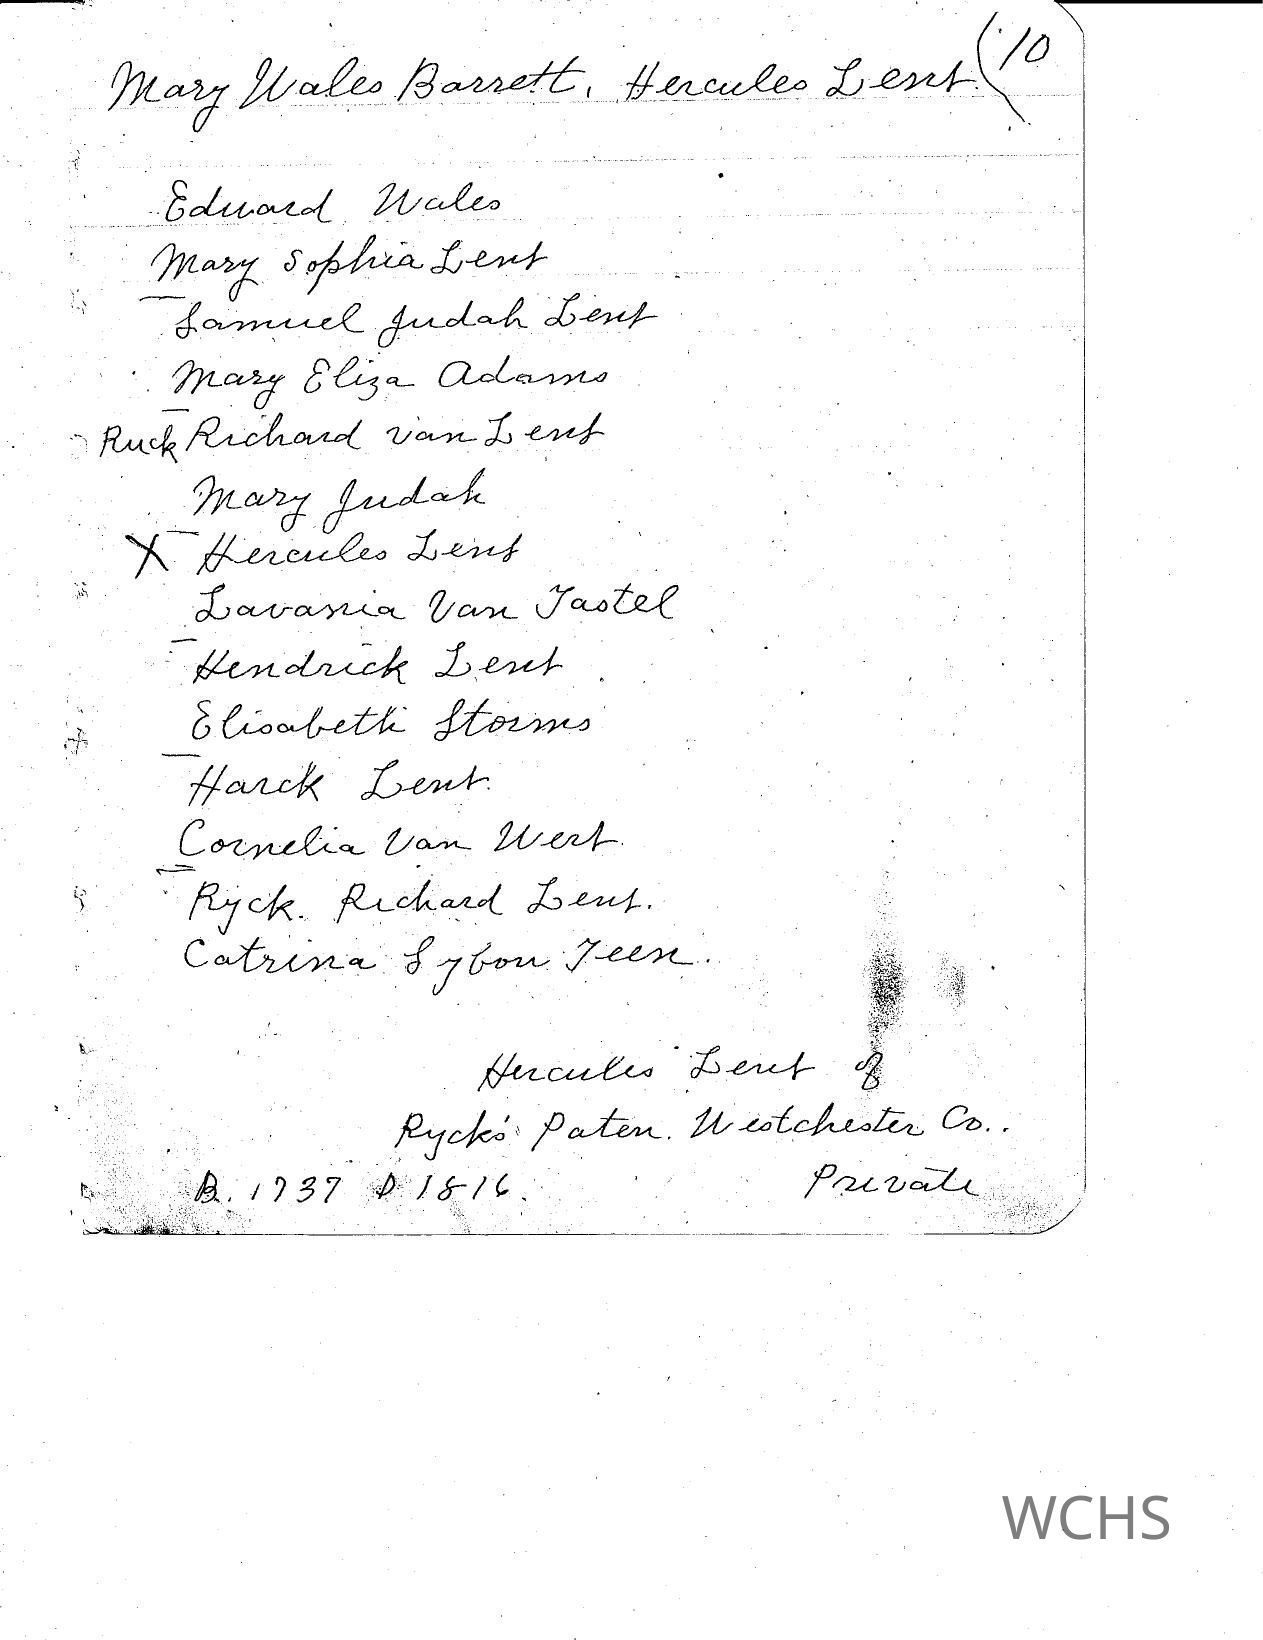 Mary Wales Barrett. Hercules Lent. (10
Edward Wales
Mary Sophia Lent
Samuel Judah Lent
Mary Eliza Adams
Ruck Richard van Lent
Mary Judah
X Hercules Lent
Lavania Van Tastel
Hendrick Lent
Elisabeth Storms
Harck Lent.
Cornelia Van Wert.
Ryck. Richard Lent.
Catrina Sybou Teen.
Hercules Lent of
Ryck's Paten. Westchester Co..
B. 1737 D 1816. Private
WCHS